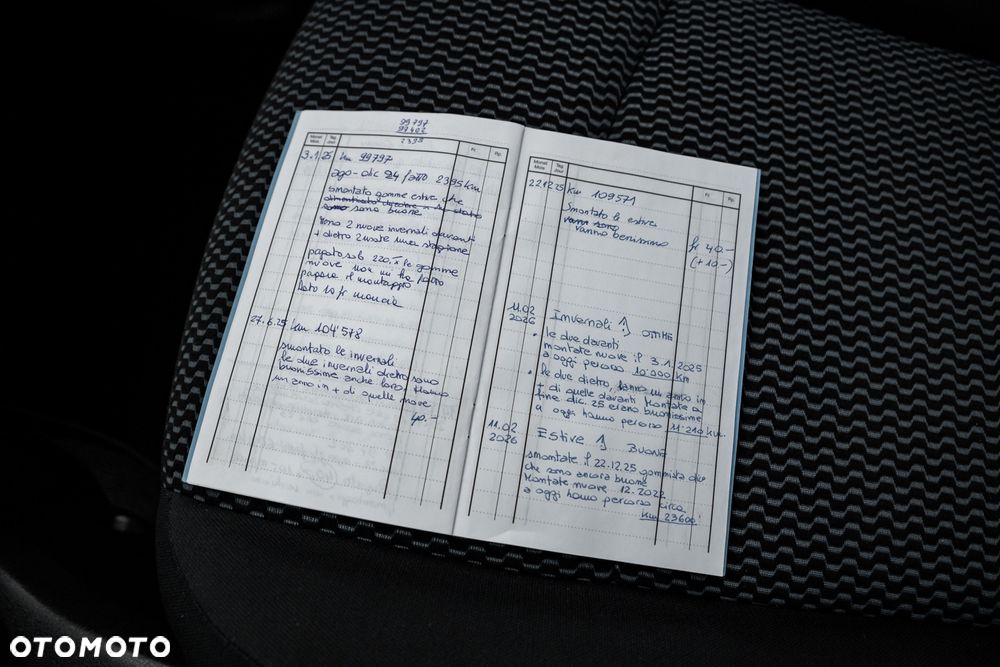 99797
97402
2395
Monat Mois
Tag Jour
Fr.
Rp.
3.1.25 km 99797
ago-dic 24 fatto 2395 km
smontato gomme estive che
sono buone
sono 2 nuove invernali davanti
+ dietro 2 usate una stagione
pagato solo 220.- x le gomme
nuove non mi ha fatto
pagare il montaggio
dato 10 fr mancia
27.6.25 km 104'578
smontato le invernali
le due invernali dietro sono
buonissime anche loro, hanno
un anno in + di quelle nuove
40.-
Monat Mois
Tag Jour
Fr.
Rp.
22.12.25 km 109571
Smontato le estive
vanno benissimo
fr 40.-
(+10.-)
11.02 2026 Invernali
• le due davanti
montate nuove il 3.1.2025
a oggi percorso 10'000 km
• le due dietro, hanno un anno in
+ di quelle davanti montate a
fine dic. 25 erano buonissime
a oggi hanno percorso 11'210 km.
11.02 2026 Estive
smontate il 22.12.25 gommista dice
che sono ancora buone
montate nuove 12.2022
a oggi hanno percorso circa
km 23600!
OTOMOTO